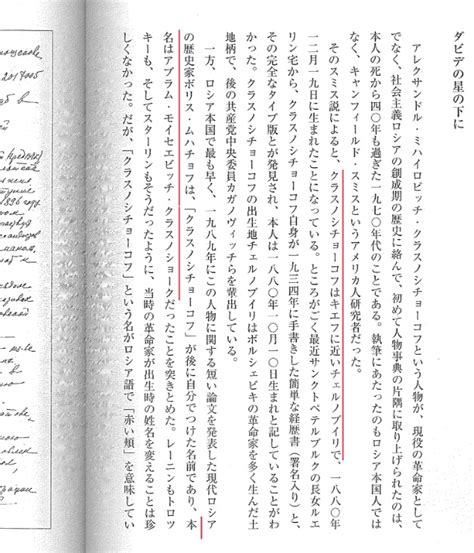 ダビデの星の下に
アレクサンドル・ミハイロビッチ・クラスノシチョーコフという人物が、現役の革命家として
でなく、社会主義ロシアの創成期の歴史に絡んで、初めて人物事典の片隅に取り上げられたのは、
本人の死から四〇年も過ぎた一九七〇年代のことである。執筆にあたったのもロシア本国人では
なく、キャンフィールド・スミスというアメリカ人研究者だった。
そのスミス説によると、クラスノシチョーコフはキエフに近いチェルノブイリで、一八八〇年
一二月一九日に生まれたことになっている。ところがごく最近サンクトペテルブルクの長女ルエ
リン宅から、クラスノシチョーコフ自身が一九三四年に手書きした簡単な経歴書（署名入り）と、
その完全なタイプ版とが発見され、本人は一八八〇年一〇月一〇日生まれと記していることがわ
かった。クラスノシチョーコフの出生地チェルノブイリはボルシェビキの革命家を多く生んだ土
地柄で、後の共産党中央委員カガノヴィッチらを輩出している。
一方、ロシア本国で最も早く、一九八九年にこの人物に関する短い論文を発表した現代ロシア
の歴史家ボリス・ムハチョフは、「クラスノシチョーコフ」が後に自分でつけた名前であり、本
名はアブラム・モイセエビッチ・クラスノショークだったことを突きとめた。レーニンもトロツ
キーも、そしてスターリンもそうだったように、当時の革命家が出生時の姓名を変えることは珍
しくなかった。だが、「クラスノシチョーコフ」という名がロシア語で「赤い頬」を意味してい